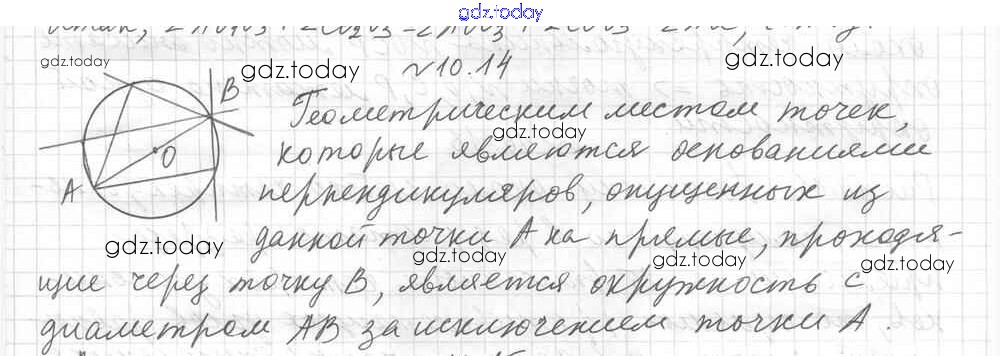 gdz.today
№10.14
B
Геометрическим местом точек,
O
которые являются основаниями
A
перпендикуляров, опущенных из
данной точки A на прямые, проходя-
щие через точку B, является окружность с
диаметром AB за исключением точки A.
gdz.today
gdz.today
gdz.today
gdz.today
gdz.today
gdz.today
gdz.today
gdz.today
gdz.today
gdz.today